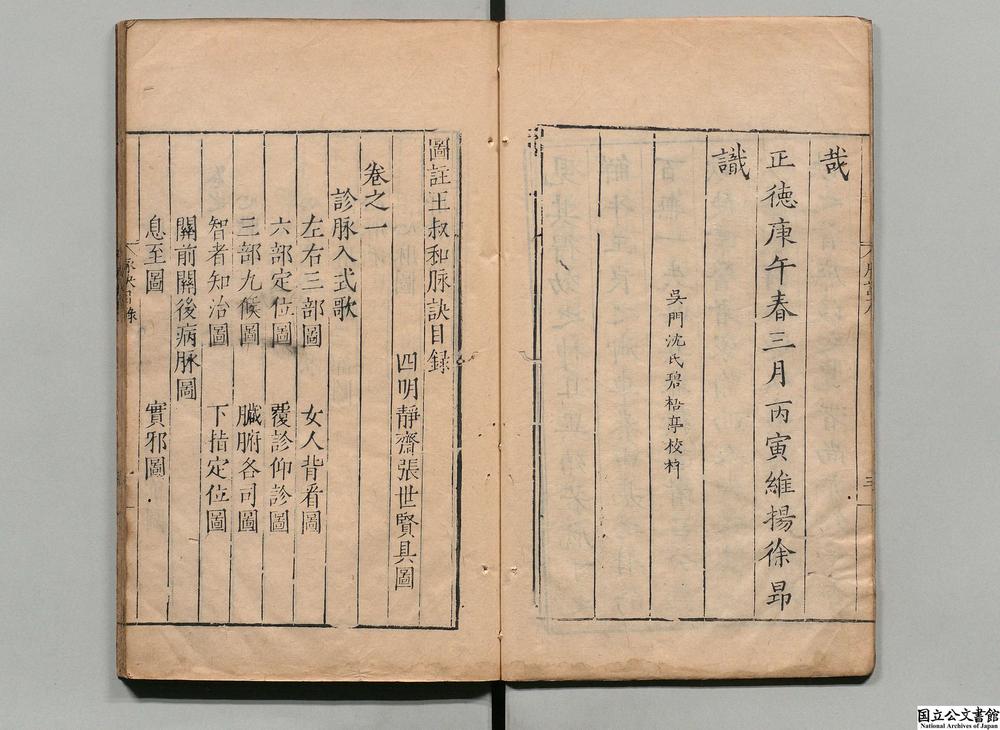 哉
正德庚午春三月丙寅維揚徐昻
識
吳門沈氏碧梧亭校梓
圖註王叔和脉訣目録
四明靜齋張世賢具圖
卷之一
診脉入式歌
左右三部圖 女人背看圖
六部定位圖 覆診仰診圖
三部九候圖 臟腑各司圖
智者知治圖 下指定位圖
關前關後病脉圖
息至圖 實邪圖
国立公文書館
National Archives of Japan